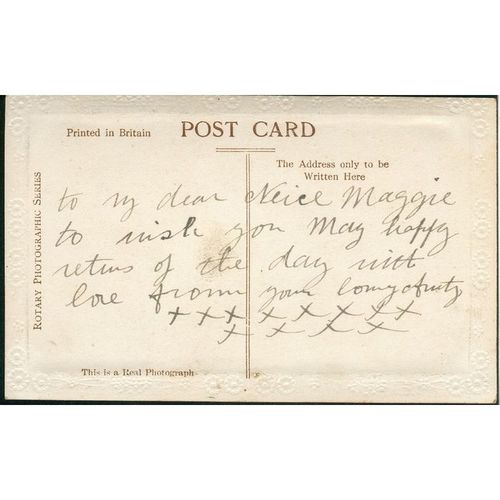 Printed in Britain
POST CARD
The Address only to be
Written Here
ROTARY PHOTOGRAPHIC SERIES
to my dear Neice Maggie
to wish you May happy
retuns of the day with
love from your
x x x x x x x x
x x x x
This is a Real Photograph